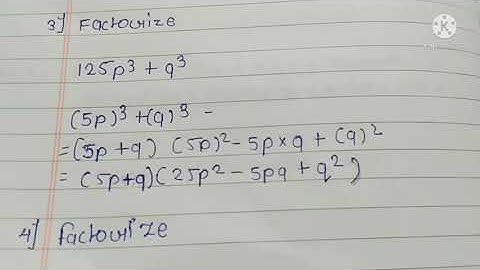 3] Factourize
125p³ + q³
(5p)³ + (q)³ -
= (5p + q) (5p)² - 5p × q + (q)²
= (5p + q) (25p² - 5pq + q²)
4] factourize